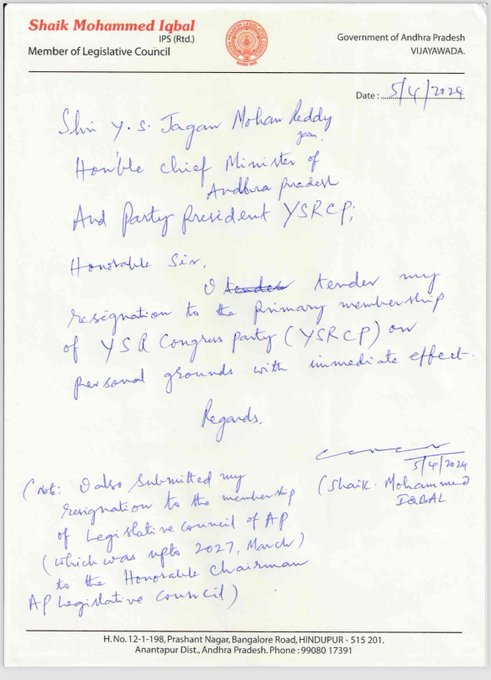 Shaik Mohammed Iqbal
IPS (Rtd.)
Member of Legislative Council
Government of Andhra Pradesh
VIJAYAWADA.
Date : 5/4/2024
Shri Y. S. Jagan Mohan Reddy
garu.
Hon'ble Chief Minister of
Andhra Pradesh
And Party President YSRCP;
Honorable Sir,
I tender tender my
resignation to the primary membership
of YSR Congress party (YSRCP) on
personal grounds with immediate effect.
Regards.
5/4/2024
(Shaik. Mohammed
IQBAL
(Note: I also submitted my
resignation to the membership
of Legislative council of AP
(which was upto 2027, March)
to the Honorable Chairman
AP Legislative Council)
H. No. 12-1-198, Prashant Nagar, Bangalore Road, HINDUPUR - 515 201.
Anantapur Dist., Andhra Pradesh. Phone : 99080 17391